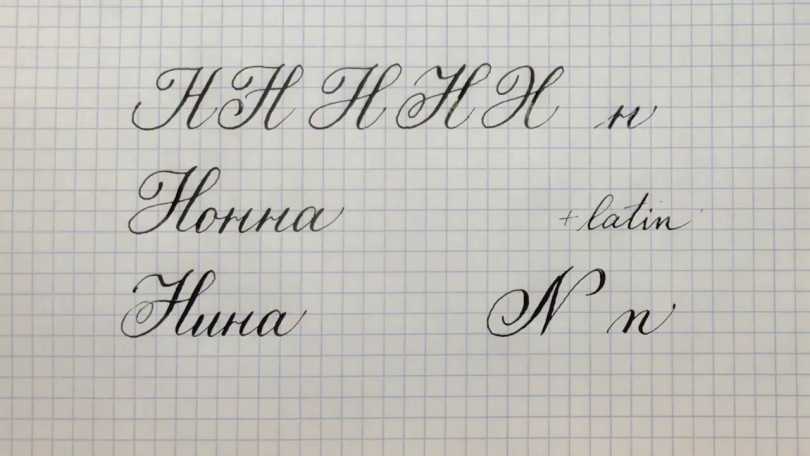 Н Н Н Н Н н
Нонна
+ latin
Нина
N n